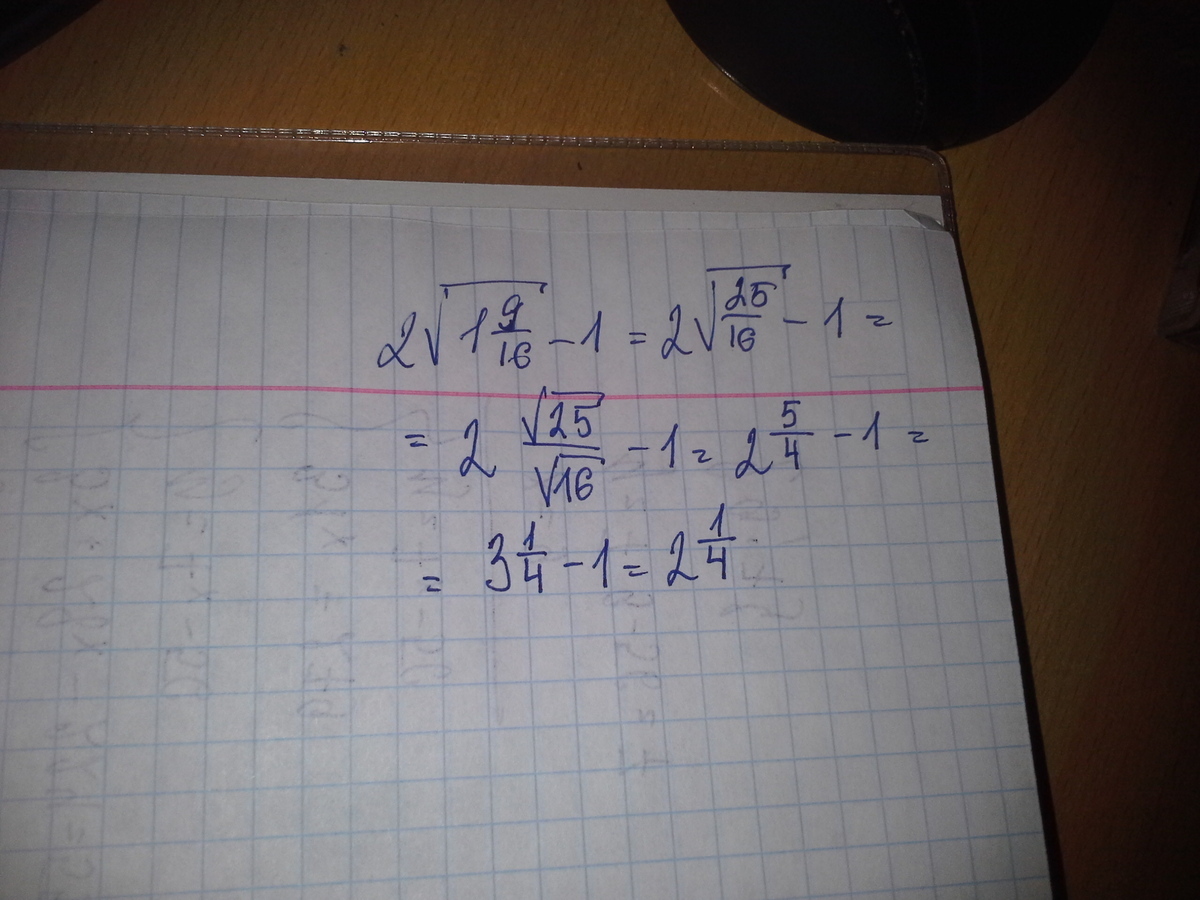 2√(1 9/16) - 1 = 2√(25/16) - 1 =
= 2 √25/√16 - 1 = 2 5/4 - 1 =
= 3 1/4 - 1 = 2 1/4